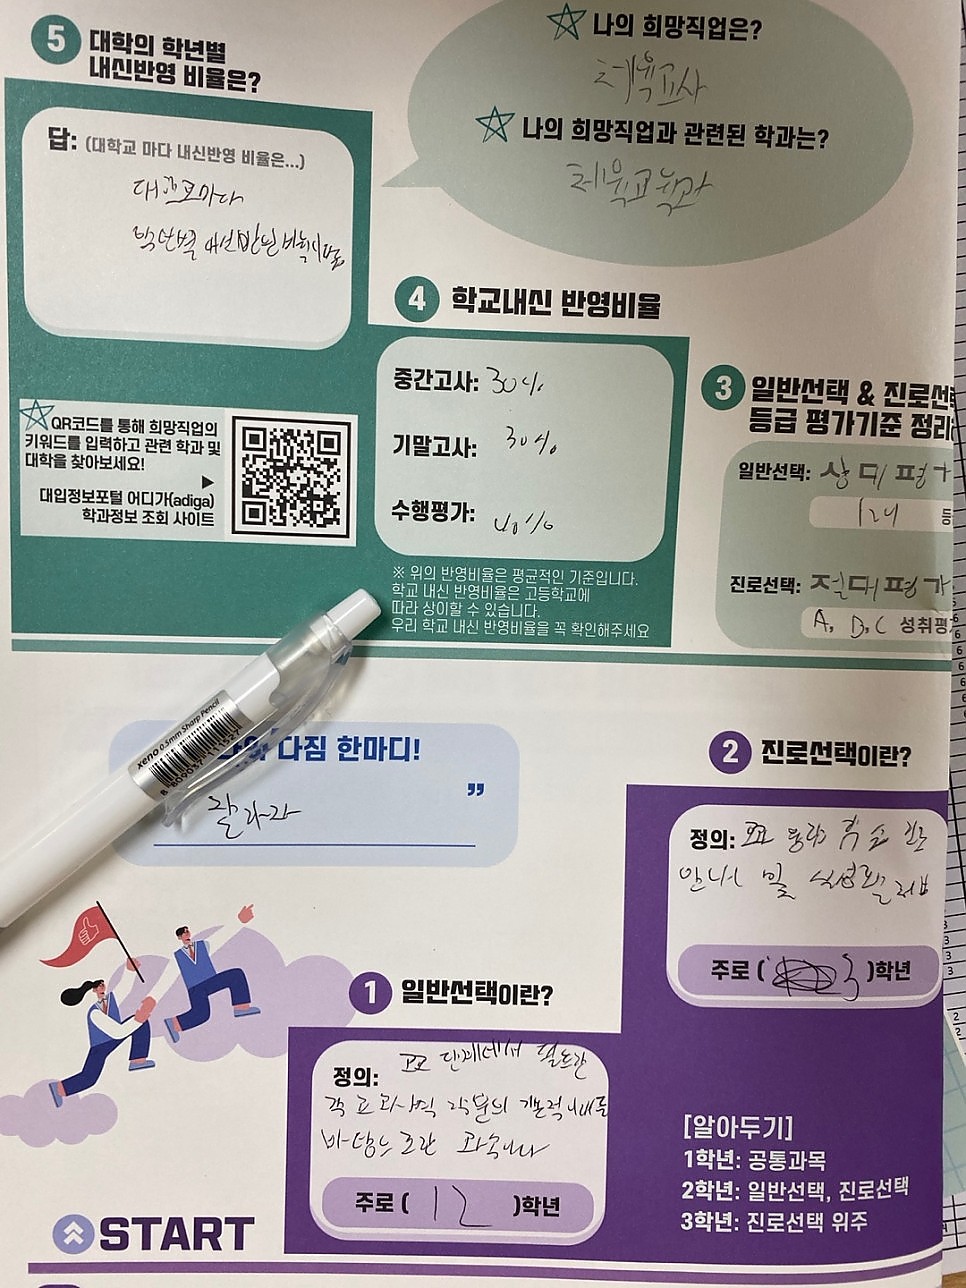 5 대학의 학년별
내신반영 비율은?
답: (대학교 마다 내신반영 비율은...)
대학교마다
학년별 내신반영 비율이 다름
나의 희망직업은?
체육교사
나의 희망직업과 관련된 학과는?
체육교육과
4 학교내신 반영비율
중간고사: 30%
기말고사: 30%
수행평가: 40%
※ 위의 반영비율은 평균적인 기준입니다.
학교 내신 반영비율은 고등학교에
따라 상이할 수 있습니다.
우리 학교 내신 반영비율을 꼭 확인해주세요
QR코드를 통해 희망직업의
키워드를 입력하고 관련 학과 및
대학을 찾아보세요!
대입정보포털 어디가(adiga)
학과정보 조회 사이트
3 일반선택 & 진로선
등급 평가기준 정리
일반선택: 상대평가
등
진로선택: 절대평가
A, B, C 성취평
xeno 0.5mm Sharp Pencil
다짐 한마디!
잘하자
”
2 진로선택이란?
정의: 교과 융합 학습
안내 및
주로 ( 3 )학년
1 일반선택이란?
정의: 고교 단계에서 필요한
각 교과별 학문의 기본적 이해를
바탕으로한 과목이다
주로 ( 12 )학년
[알아두기]
1학년: 공통과목
2학년: 일반선택, 진로선택
3학년: 진로선택 위주
START